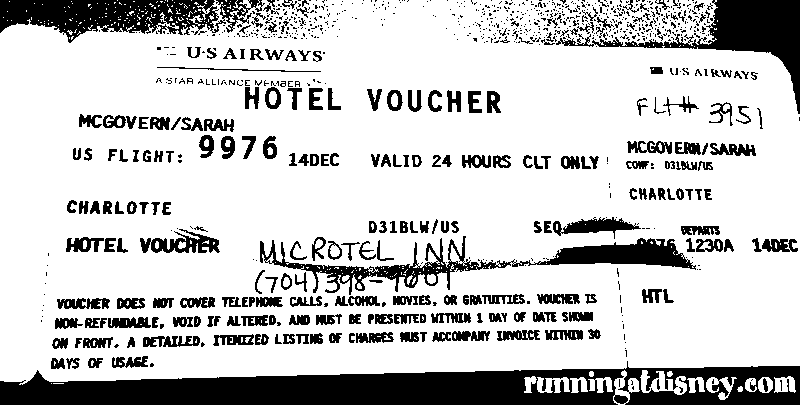 U·S AIRWAYS
A STAR ALLIANCE MEMBER
HOTEL VOUCHER
MCGOVERN/SARAH
US FLIGHT: 9976 14DEC VALID 24 HOURS CLT ONLY
CHARLOTTE
D31BLW/US SEQ
HOTEL VOUCHER
MICROTEL INN
(704) 398-9601
VOUCHER DOES NOT COVER TELEPHONE CALLS, ALCOHOL, MOVIES, OR GRATUITIES. VOUCHER IS
NON-REFUNDABLE, VOID IF ALTERED, AND MUST BE PRESENTED WITHIN 1 DAY OF DATE SHOWN
ON FRONT. A DETAILED, ITEMIZED LISTING OF CHARGES MUST ACCOMPANY INVOICE WITHIN 30
DAYS OF USAGE.
U·S AIRWAYS
FLT# 3951
MCGOVERN/SARAH
CONF: D31BLW/US
CHARLOTTE
DEPARTS
9976 1230A 14DEC
HTL
runningatdisney.com